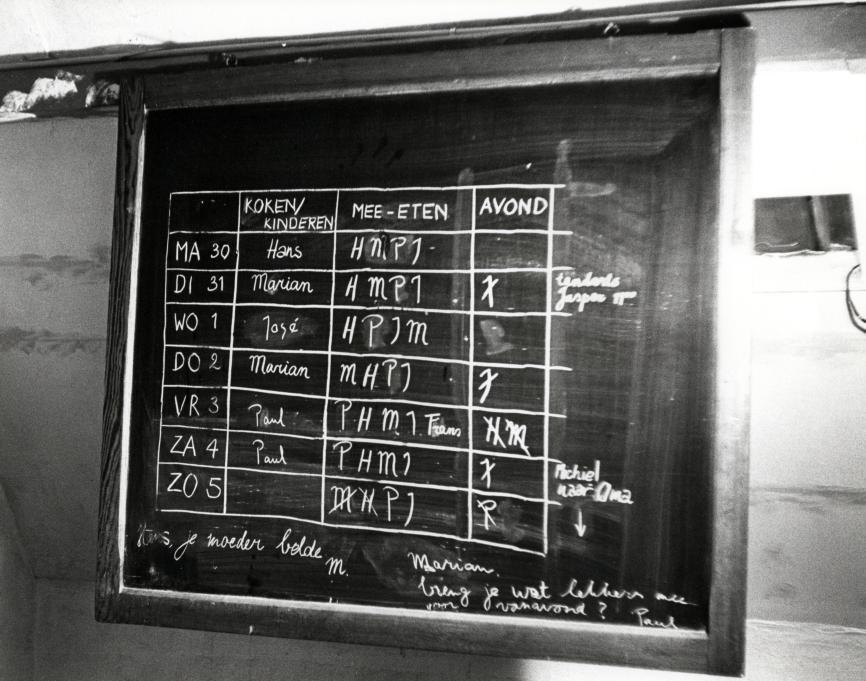 KOKEN/ KINDEREN MEE-ETEN AVOND
MA 30 Hans H M P J
DI 31 Marian H M P J J tandarts
Jasper
WO 1 José H P J M
DO 2 Marian M H P J J
VR 3 Paul P H M J Frans H M
ZA 4 Paul P H M J J Michiel
naar Oma
ZO 5 M H P J P
Hans, je moeder belde
M.
Marian,
breng je wat lekkers mee
voor vanavond? Paul